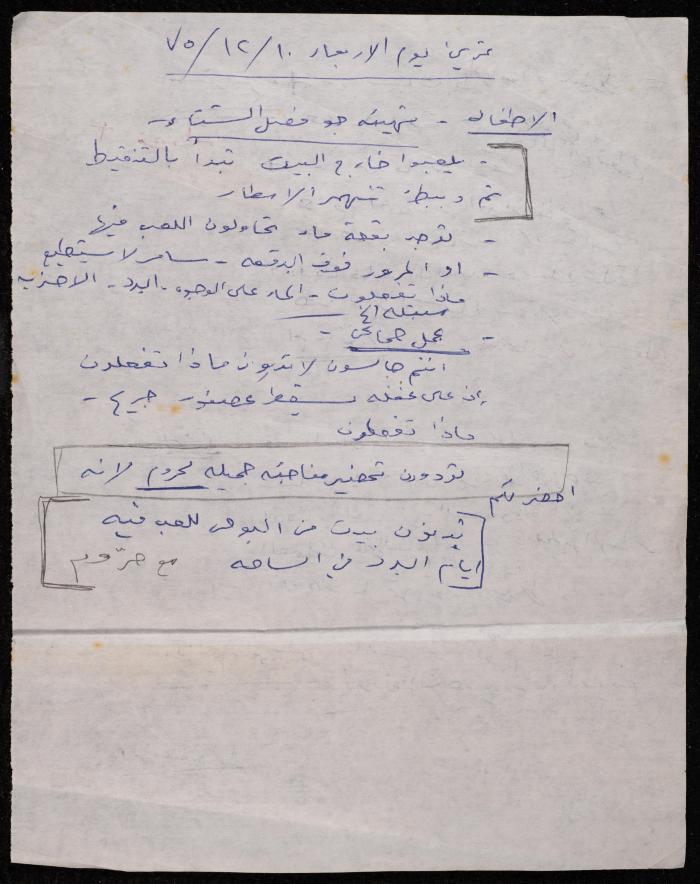 تمرين يوم الاربعاء ٧٥/١٢/١٠
الاطفال - تهيئة جو فصل الشتاء -
- يلعبوا خارج البيت تبدأ بالتنقيط
ثم وببطئ تنهمر الامطار
- توجد بقعة ماء تحاولون اللعب فيها
- او المرور فوق البقعه - سامر لا يستطيع
ماذا تفعلون - الماء على الوجوه - البرد - الاحذيه
مبتله الخ
- عمل جماعي -
انتم جالسون لا تدرون ماذا تفعلون
على غفله يسقط عصفور جريح -
ماذا تفعلون
تودون تحضير مفاجئه جميله لحروم لانه
احضر لكم
تبنون بيت من البوص للعب فيه
ايام البرد في الساحه مع حرّوم